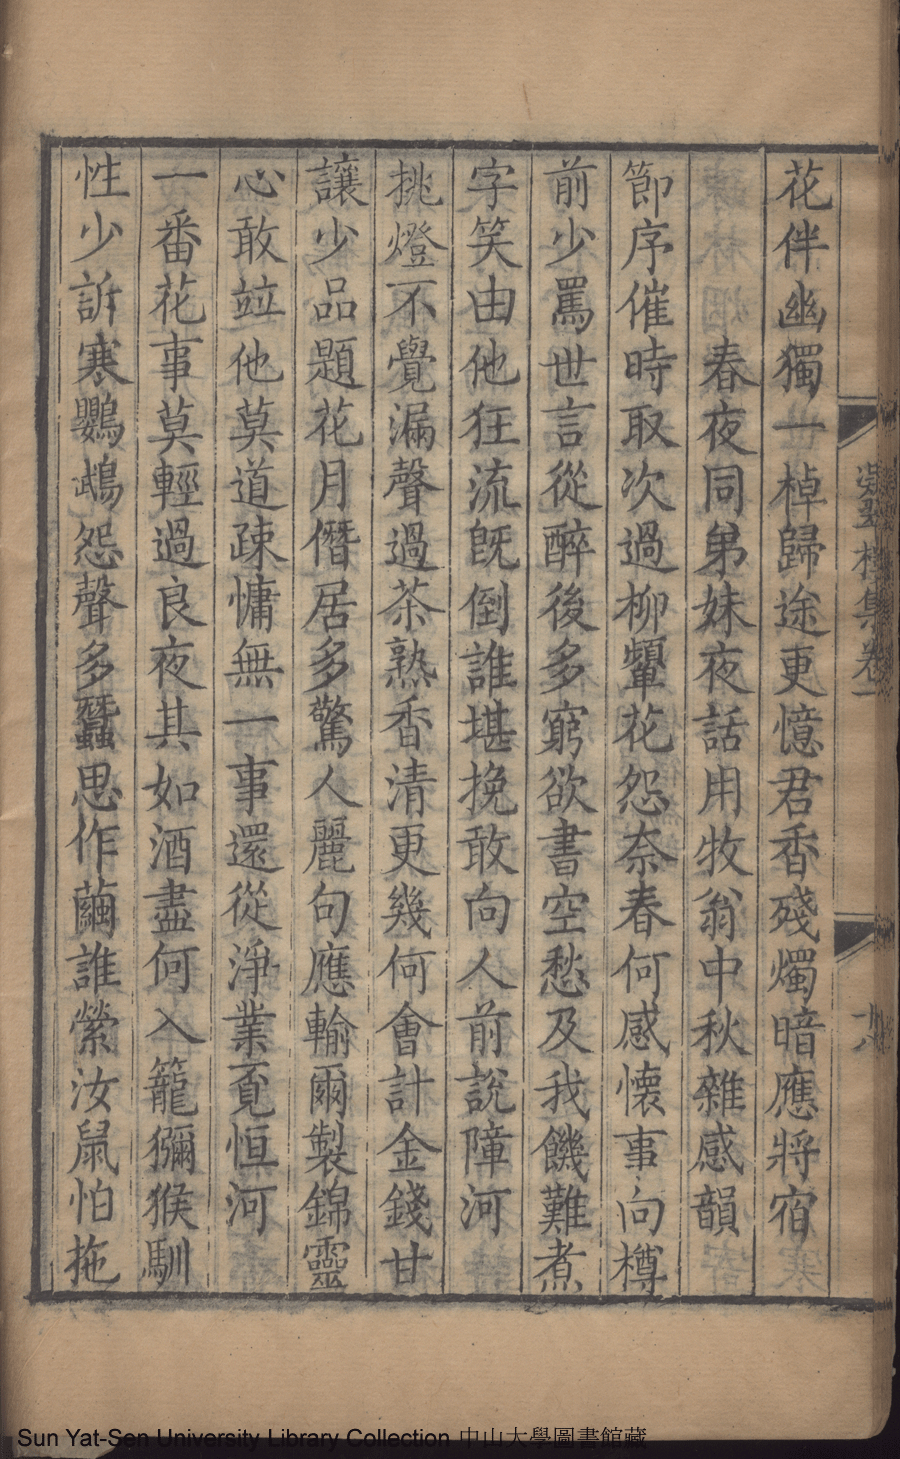 花伴幽獨一棹歸途更憶君香殘燭暗應將宿
春夜同弟妹夜話用牧翁中秋雜感韻
節序催時取次過柳顰花怨奈春何感懷事向樽
前少罵世言從醉後多窮欲書空愁及我饑難煮
字笑由他狂流旣倒誰堪挽敢向人前說障河
挑燈不覺漏聲過茶熟香清更幾何會計金錢甘
讓少品題花月僭居多驚人麗句應輸爾製錦靈
心敢竝他莫道疎慵無一事還從淨業覓恒河
一番花事莫輕過良夜其如酒盡何入籠獼猴馴
性少訴寒鸚鵡怨聲多蠶思作繭誰縈汝鼠怕拖
集卷一
十八
Sun Yat-Sen University Library Collection 中山大學圖書館藏